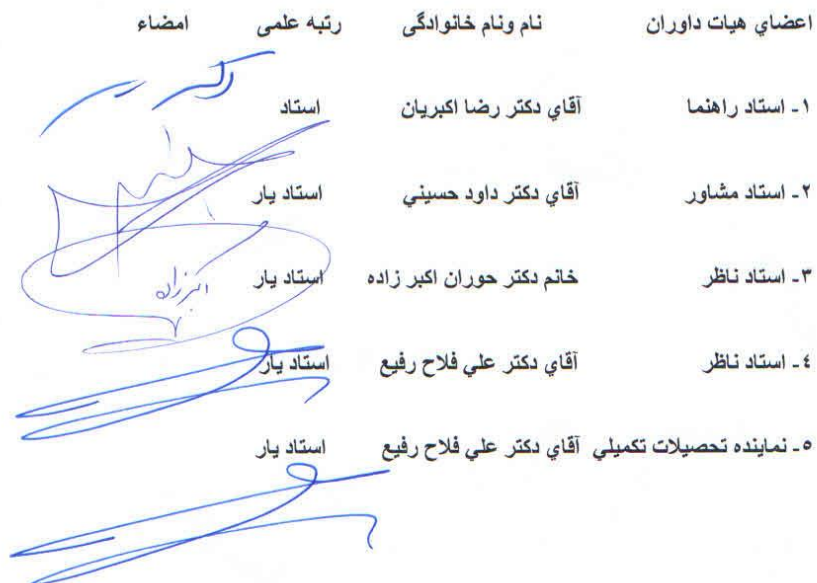 اعضاي هيات داوران نام ونام خانوادگی رتبه علمی امضاء
۱ـ استاد راهنما آقاي دكتر رضا اکبریان استاد
۲ـ استاد مشاور آقاي دكتر داود حسيني استاد يار
۳ـ استاد ناظر خانم دكتر حوران اکبر زاده استاد يار
اکبرزاده
٤ـ استاد ناظر آقاي دكتر علي فلاح رفيع استاد يار
٥ـ نماينده تحصيلات تكميلي آقاي دكتر علي فلاح رفيع استاد يار